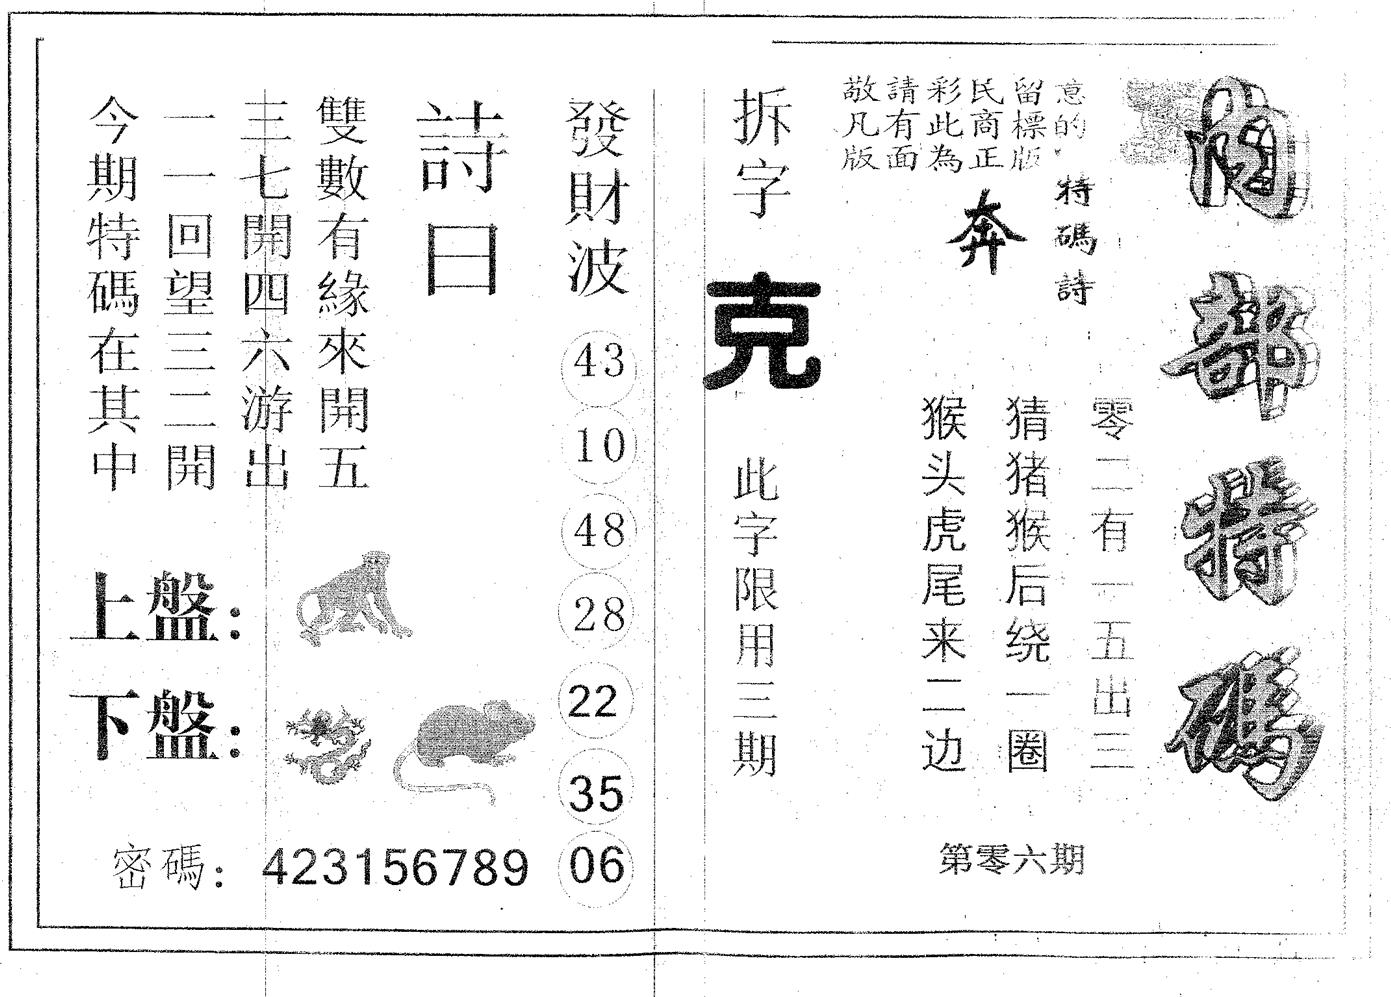 內部特碼
特碼詩
奔
零二有一五出三
猜猪猴后绕一圈
猴头虎尾来二边
第零六期
敬請彩民留意
凡有此商標的
版面為正版
拆字
克
此字限用三期
發財波
43
10
48
28
22
35
06
詩曰
雙數有緣來開五
三七開四六游出
一一回望三二開
今期特碼在其中
上盤：
下盤：
密碼：423156789